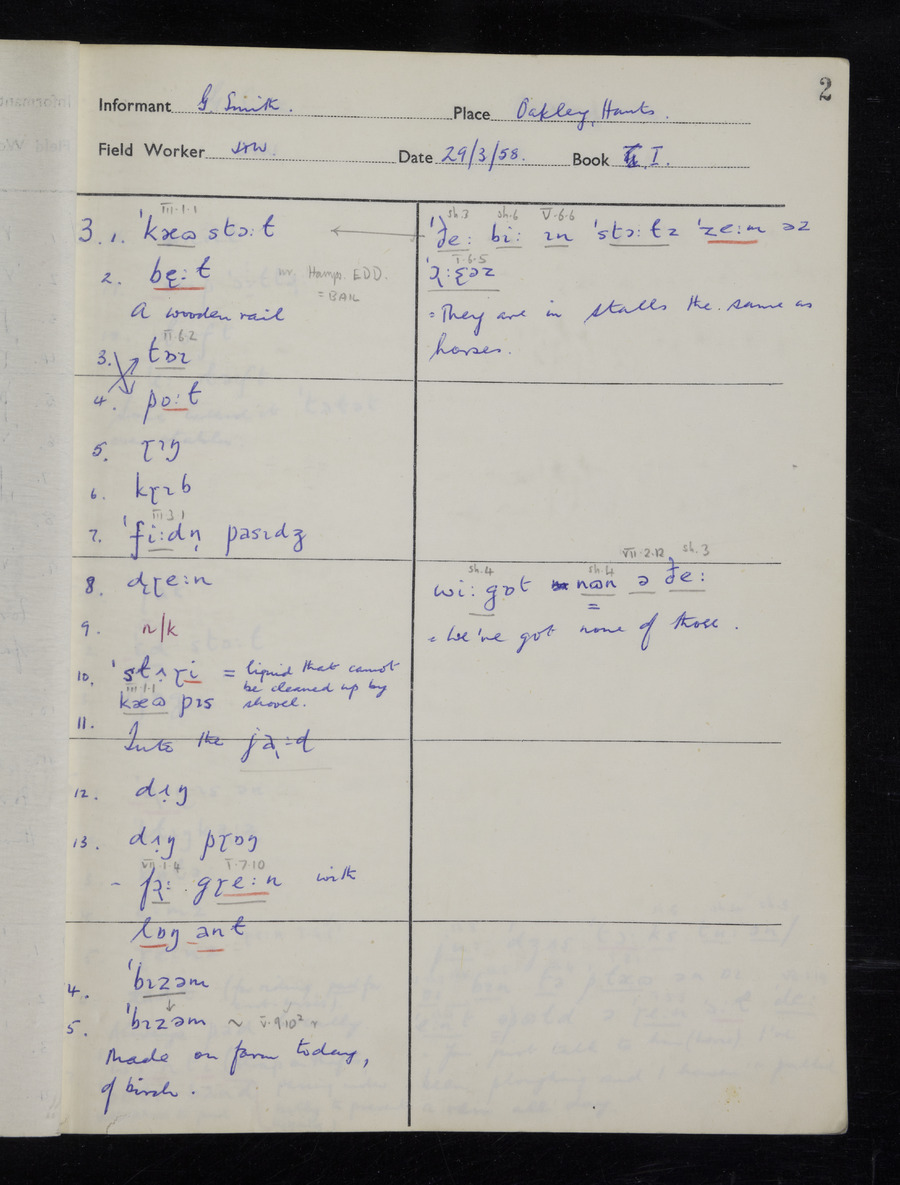 2
Informant G. Smith.
Place Oakley, Hants.
Field Worker
Date 29/3/58.
Book I.
III·1·1
3. 1. ˈkæɷ stɔːt
2. bęːt Hamps. EDD.
= BAIL
A wooden rail
II·6·2
3. tɒɪ
4. poːt
5. ɽɪŋ
6. kɽɪb
III 3 1
7. ˈfiːdn̩ pasɪdʒ
8. dɽeːn
9. n/k
10. = liquid that cannot
be cleaned up by
shovel.
III·1·1
kæɷ pɪs
11. Into the
12.
13.
VII·1·4 I·7·10
with
lɒŋ ant
4. ˈbɪzəm
↓
5. ˈbɪzəm ~ V·9·10²
Made on farm today,
of birch.
sh.3 sh.6 V·6·6
ˈðeː biː ɪn ˈstɔːtz ˈzeːm əz
I·6·5
= They are in stalls the same as
horses.
VII·2·12, sh.3
sh.4 sh.4
wiː gɒt nɷn ə ðeː
= We've got none of those.